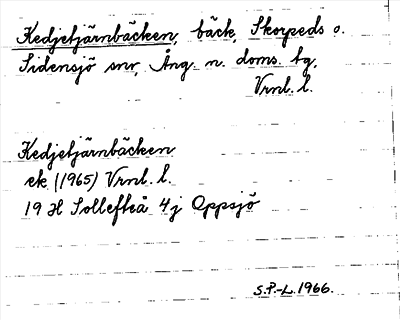 Kedjetjärnbäcken, bäck, Skorpeds o.
Sidensjö snr, Ång. n. doms. tg,
Vrnl. l.
Kedjetjärnbäcken
ek (1965) Vrnl. l.
19 H Sollefteå 4j Oppsjö
S.P.-L. 1966.